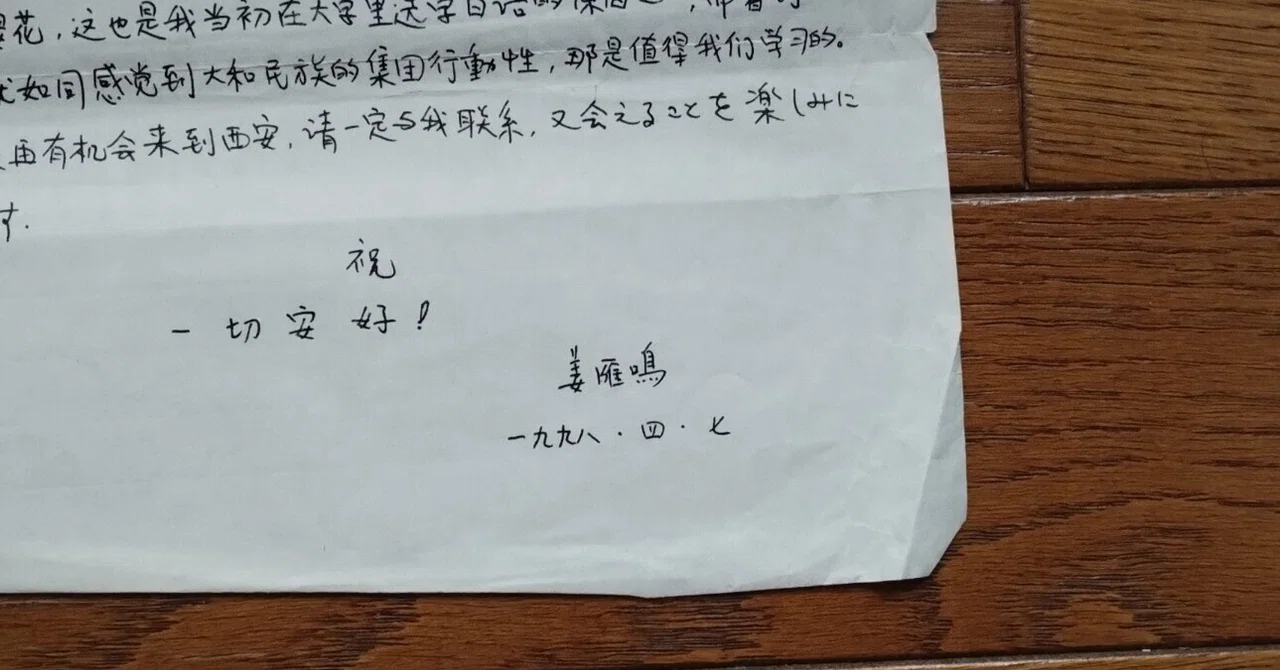 花，这也是我当初在大学里选学日语的原因之一，
如同感觉到大和民族的集团行動性，那是值得我们学习的。
再有机会来到西安，请一定与我联系，又会えることを楽しみに
す．
祝
一切安好！
姜雁鳴
一九九八．四．七